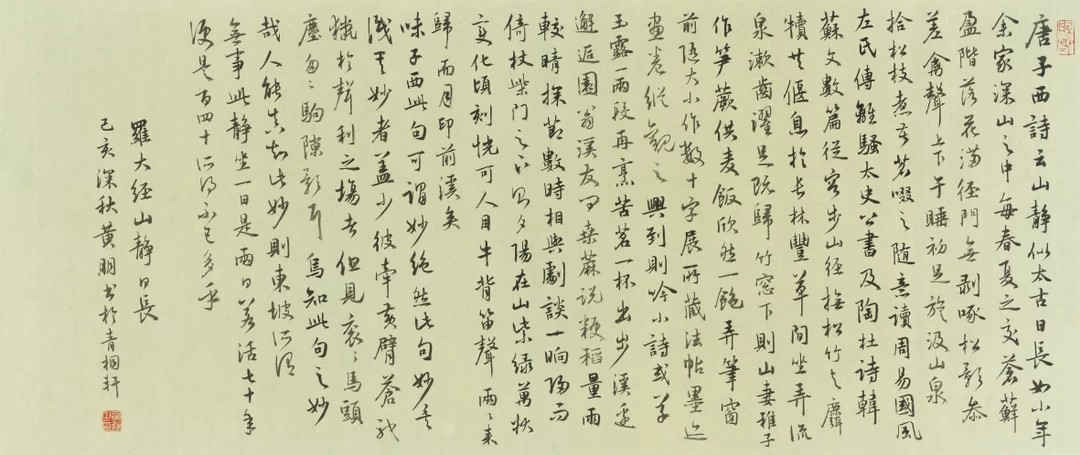 唐子西詩云山靜似太古日長如小年
余家深山之中每春夏之交蒼蘚
盈階落花滿徑門無剥啄松影參
差禽聲上下午睡初足旋汲山泉
拾松枝煮苦茗啜之隨意讀周易國風
左氏傳離騷太史公書及陶杜詩韓
蘇文數篇從容步山徑撫松竹與麛
犢共偃息於長林豐草間坐弄流
泉漱齒濯足既歸竹窓下則山妻稚子
作笋蕨供麦飯欣然一飽弄筆窗
前隨大小作數十字展所藏法帖墨迹
畫卷縱觀之興到則吟小詩或草
玉露一兩段再烹苦茗一杯出步溪邊
邂逅園翁溪友問桑麻説粳稻量雨
較晴探節數時相與劇談一晌歸而
倚杖柴門之下則夕陽在山紫綠萬狀
變化頃刻恍可人目牛背笛聲兩兩來
歸而月印前溪矣
味子西此句可謂妙絕然此句妙矣
識其妙者蓋少彼牽黃臂蒼馳
獵於聲利之場者但見衮衮馬頭
塵匆匆駒隙影耳烏知此句之妙
哉人能真知此妙則東坡所謂
無事此靜坐一日是兩日若活七十年
便是百四十所得不已多乎
羅大經山靜日長
己亥深秋黃朋書於青桐軒